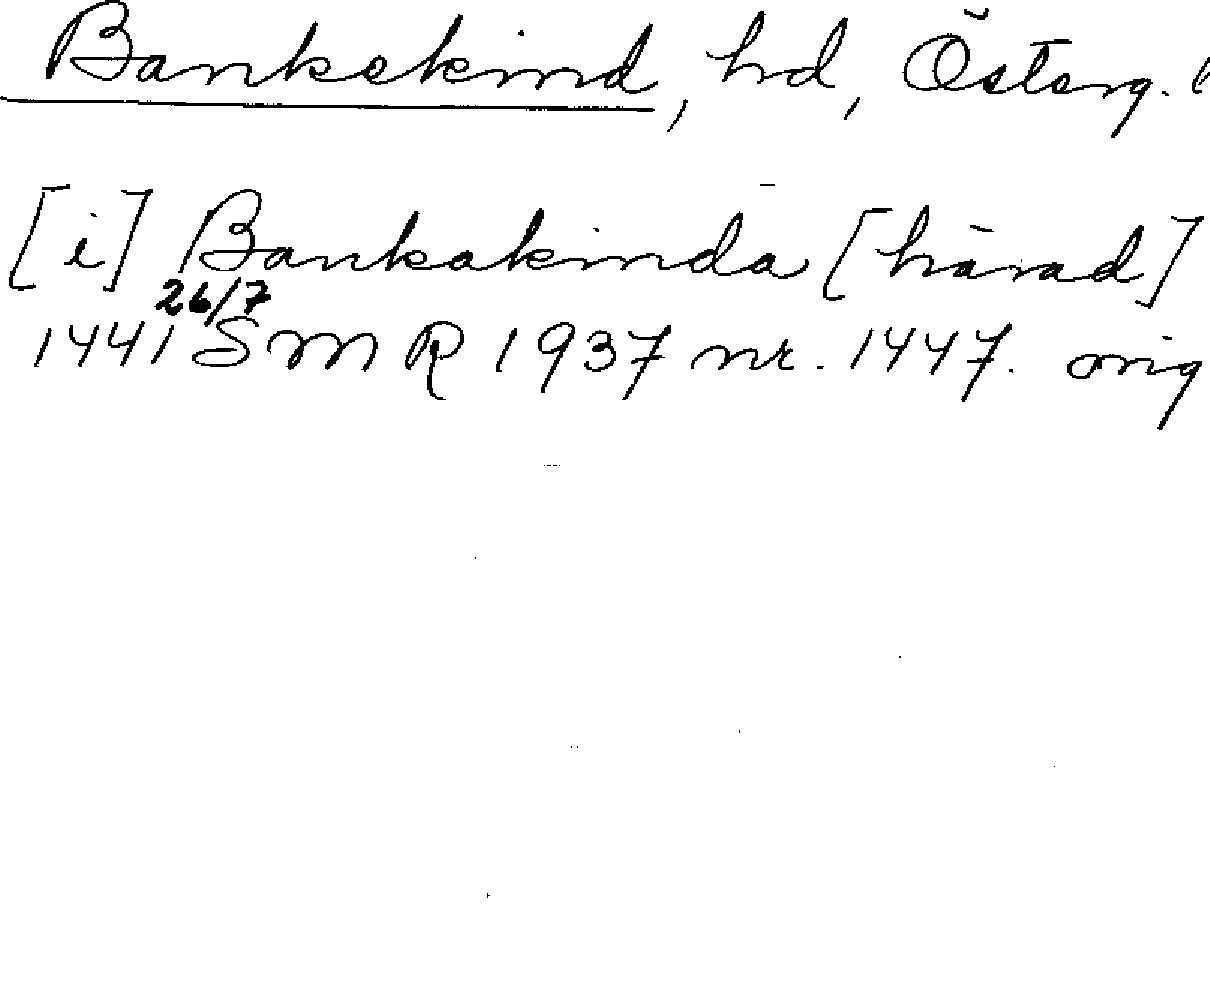 Bankekind, hd, Österg.
[i] Bankakinda [härad]
26/7
1441 SMR 1937 nr. 1447. orig